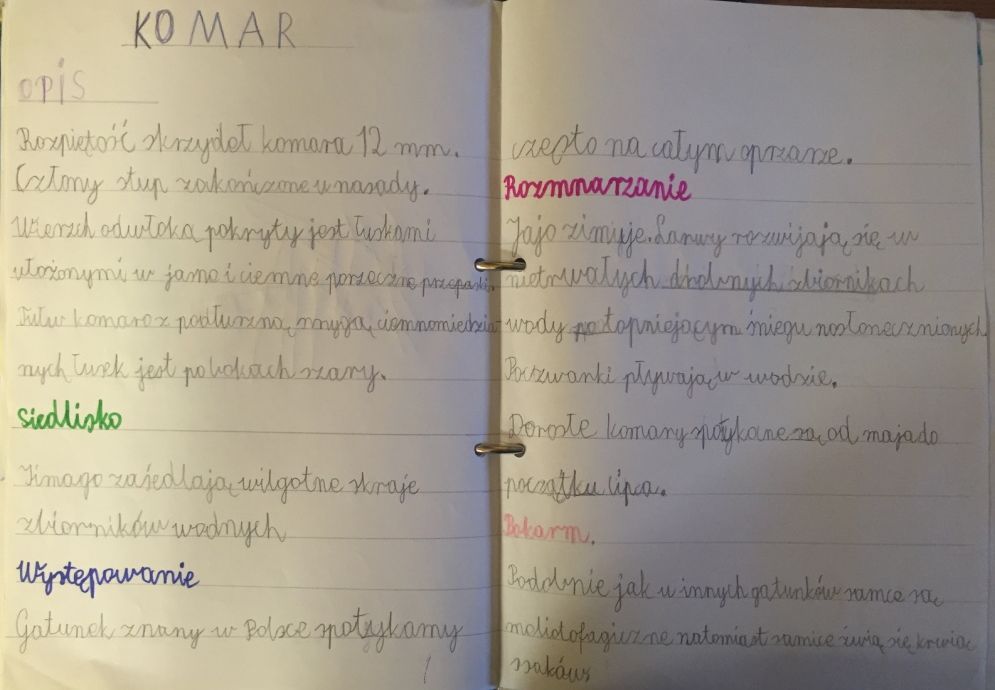 KOMAR
OPIS
Rozpiętość skrzydeł komara 12 mm.
Człony stup zakończone u nasady.
Wierzch odwłoka pokryty jest łuskami
ułożonymi w jamo i ciemne porzeczne przepaski.
Tułw komara z podłużną smygą ciemnomiedzia
nych łusek jest po bokach szary.
Siedlisko
Iimago zasiedlają wilgotne skraje
zbiorników wodnych
Występowanie
Gatunek znany w Polsce spotykamy
1
często na całym oprzaże.
Rozmnarzanie
Jajo zimuje. Larwy rozwijają się w
nietrwałych drobnych zbiornikach
wody po topniejącym śniegu nasłonecznionych.
Poczwarki pływają w wodzie.
Dorosłe komary spotykane są od maja do
początku lipca.
Pokarm.
Podobnie jak u innych gatunków samce są
melidofagiczne natomiast samice żwią się krwią
ssaków